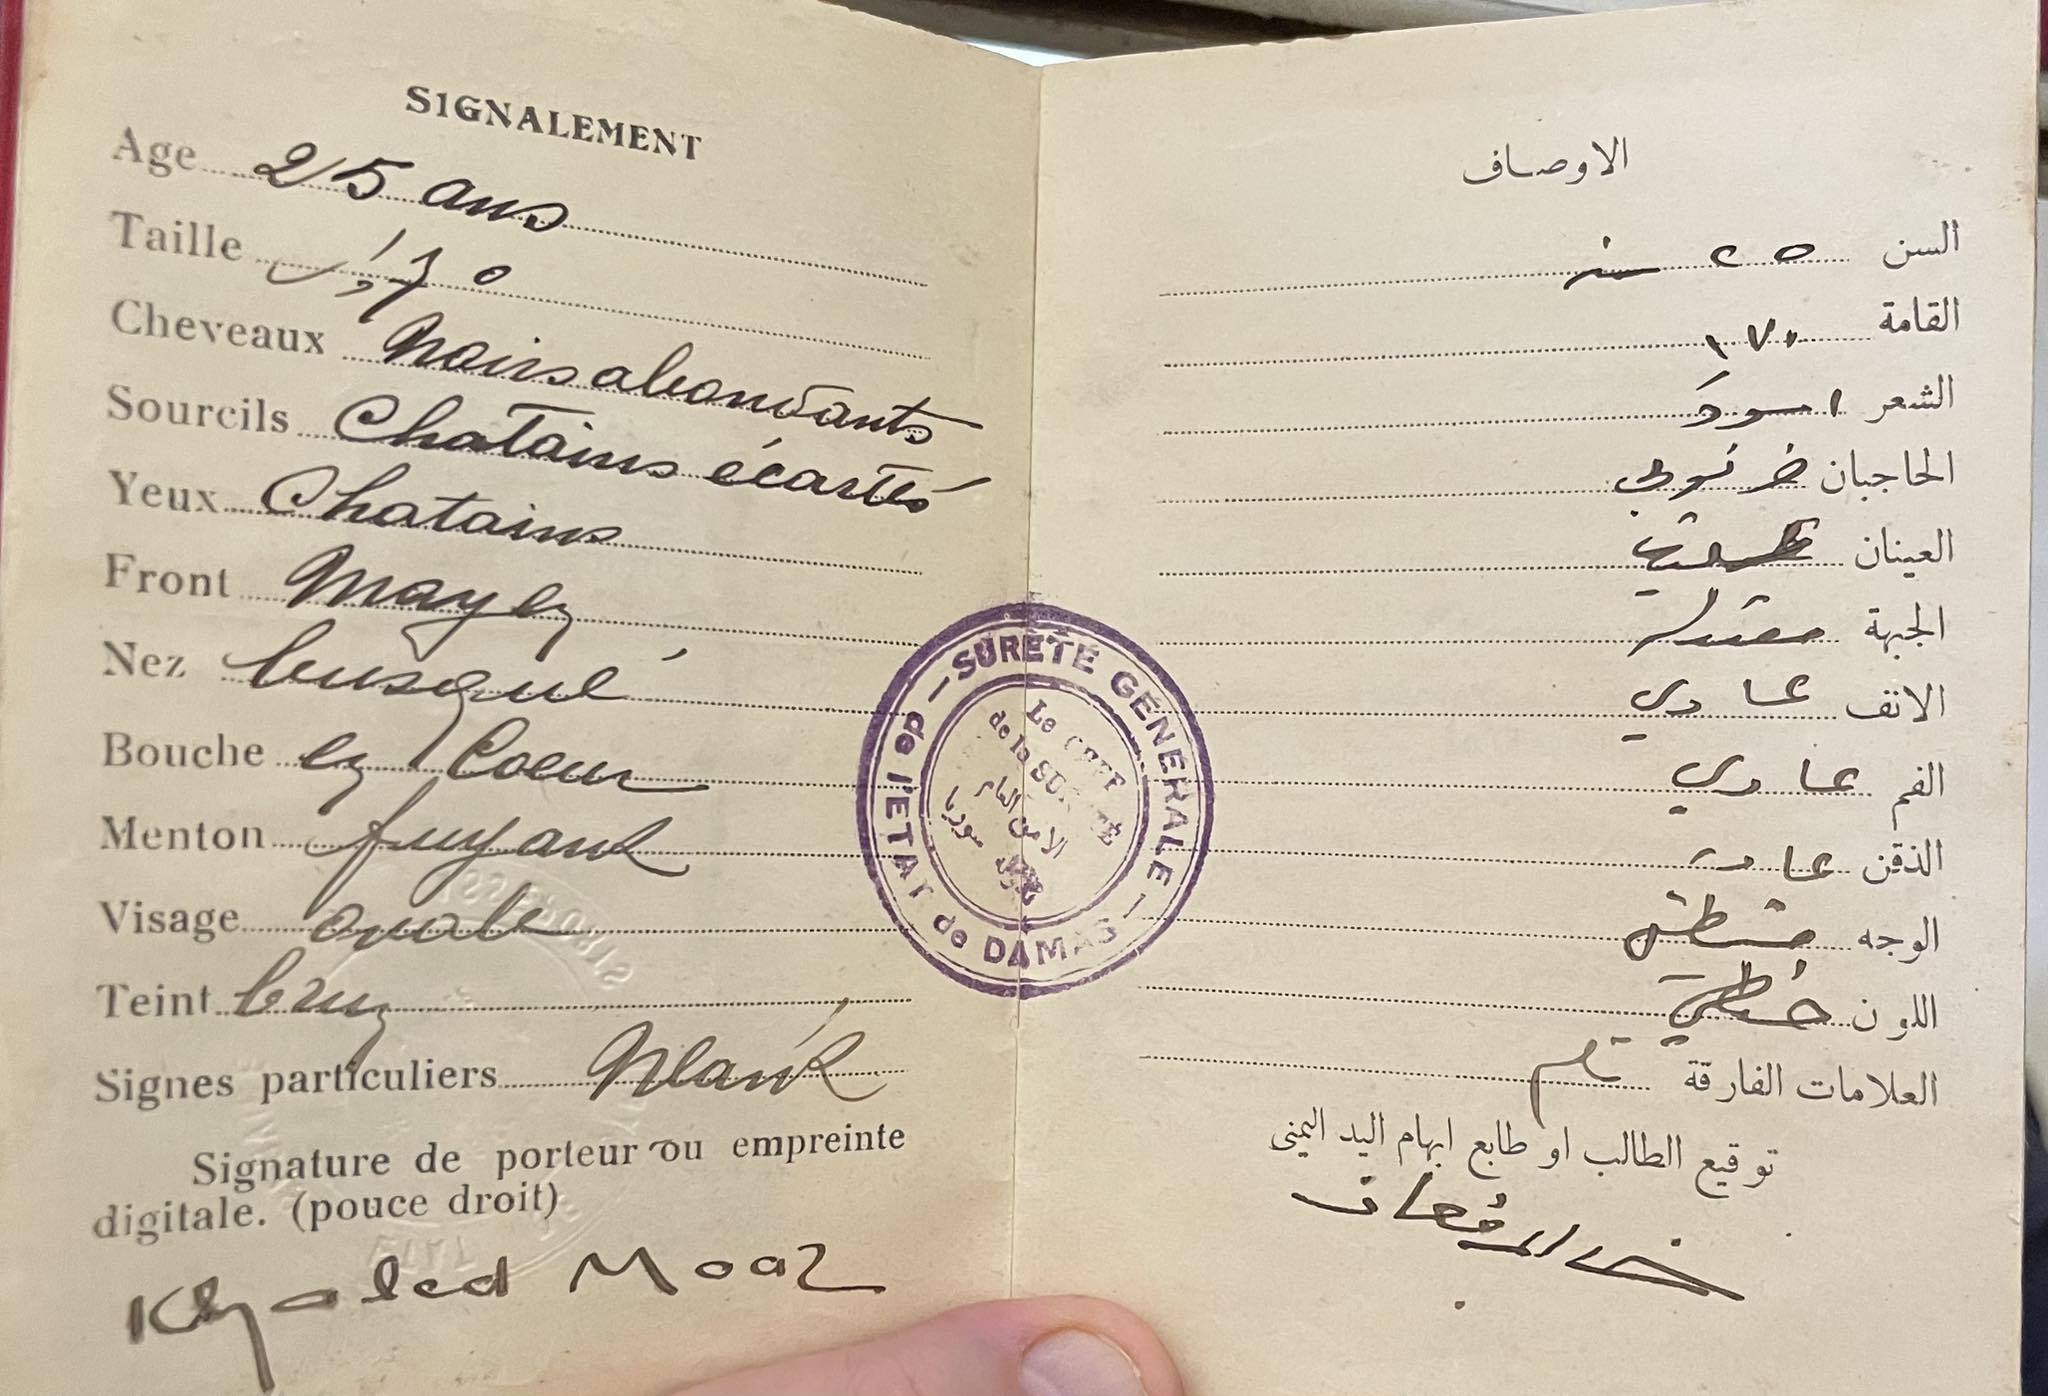 SIGNALEMENT
Age 25 ans
Taille 1,70
Cheveaux Noirs abondants
Sourcils Chatains écartés
Yeux Chatains
Front Moyen
Nez busqué
Bouche en Coeur
Menton fuyant
Visage ovale
Teint brun
Signes particuliers Néant
Signature de porteur ou empreinte
digitale. (pouce droit)
Khaled Moaz
SURETÉ GÉNÉRALE
de l'ETAT de DAMAS
Le CHEF
de la SURETÉ
الامن العام
سوريا
الاوصاف
السن ٢٥ سنة
القامة ١٧٠
الشعر اسود
الحاجبان خرنوبي
العينان
الجبهة معتدلة
الانف عادي
الفم عادي
الذقن عادي
الوجه
اللون حنطي
العلامات الفارقة
توقيع الطالب او طابع ابهام اليد اليمنى